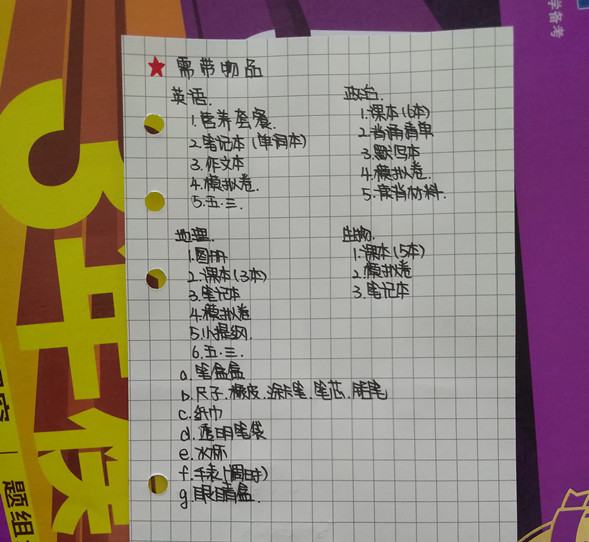 需带物品
英语.
1.营养套餐.
2.笔记本(单词本)
3.作文本
4.模拟卷.
5.五.三.
政治.
1.课本(6本)
2.背诵清单
3.默写本
4.模拟卷.
5.常背材料.
地理.
1.图册
2.课本(3本)
3.笔记本
4.模拟卷
5.小提纲.
6.五.三.
生物.
1.课本(5本)
2.模拟卷
3.笔记本
a.笔盒盒
b.尺子.橡皮.涂卡笔.笔芯.铅笔
c.纸巾
d.透明笔袋
e.水杯
f.手表(调时)
g.眼睛盒.
学备考
3年
题组